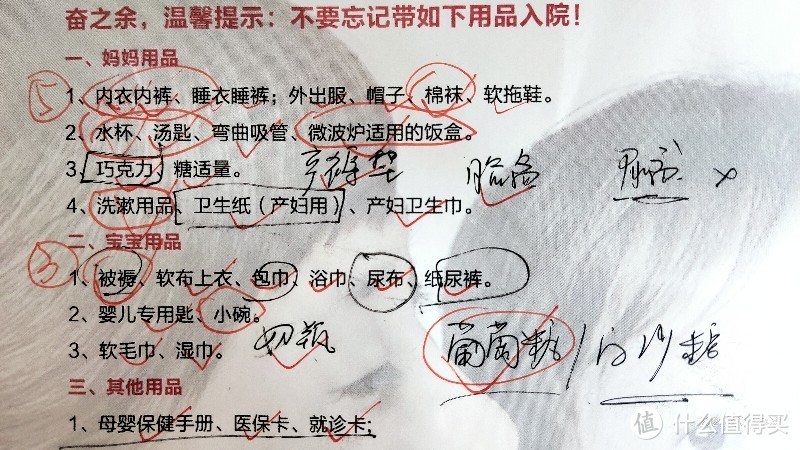 奋之余，温馨提示：不要忘记带如下用品入院！
一、妈妈用品
1、内衣内裤、睡衣睡裤；外出服、帽子、棉袜、软拖鞋。
2、水杯、汤匙、弯曲吸管、微波炉适用的饭盒。
3、巧克力、糖适量。 产褥垫
4、洗漱用品、卫生纸（产妇用）、产妇卫生巾。
二、宝宝用品
1、被褥、软布上衣、包巾、浴巾、尿布、纸尿裤。
2、婴儿专用匙、小碗。
3、软毛巾、湿巾。 奶瓶 葡萄糖/白砂糖
三、其他用品
1、母婴保健手册、医保卡、就诊卡；
值 什么值得买